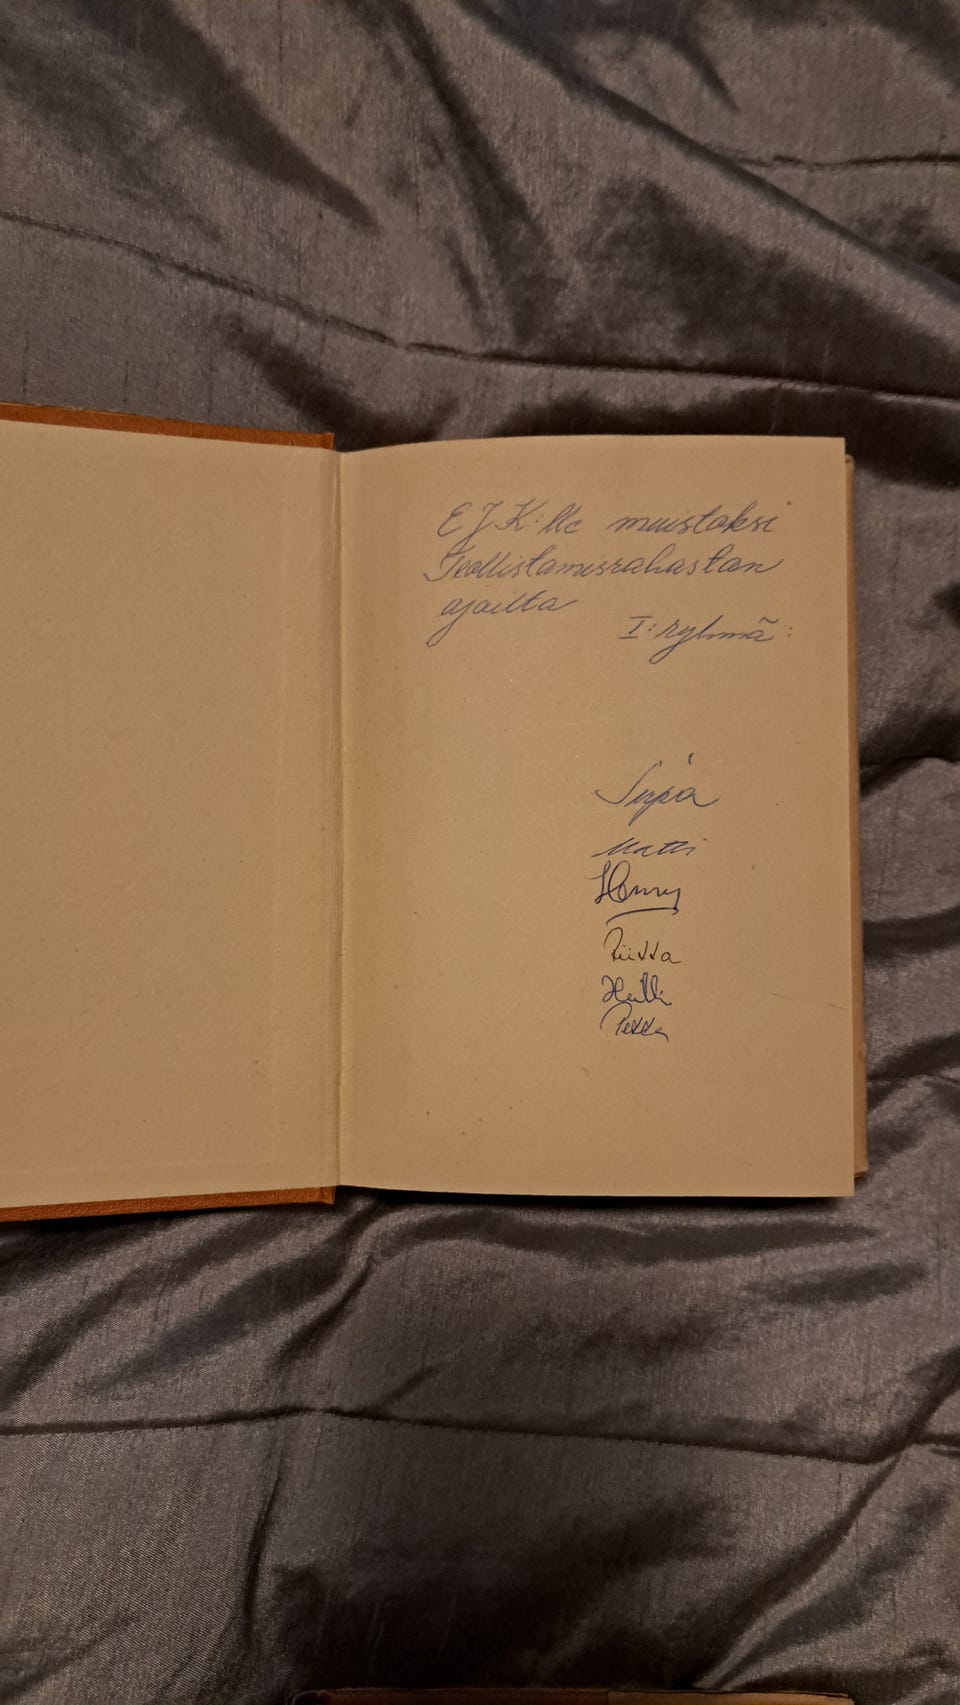 EJK:lle muistoksi
Teollistamisrahaston
ajoilta
I: ryhmä:
Sirpa
Matti
Henry
Riikka
Heikki
Pekka